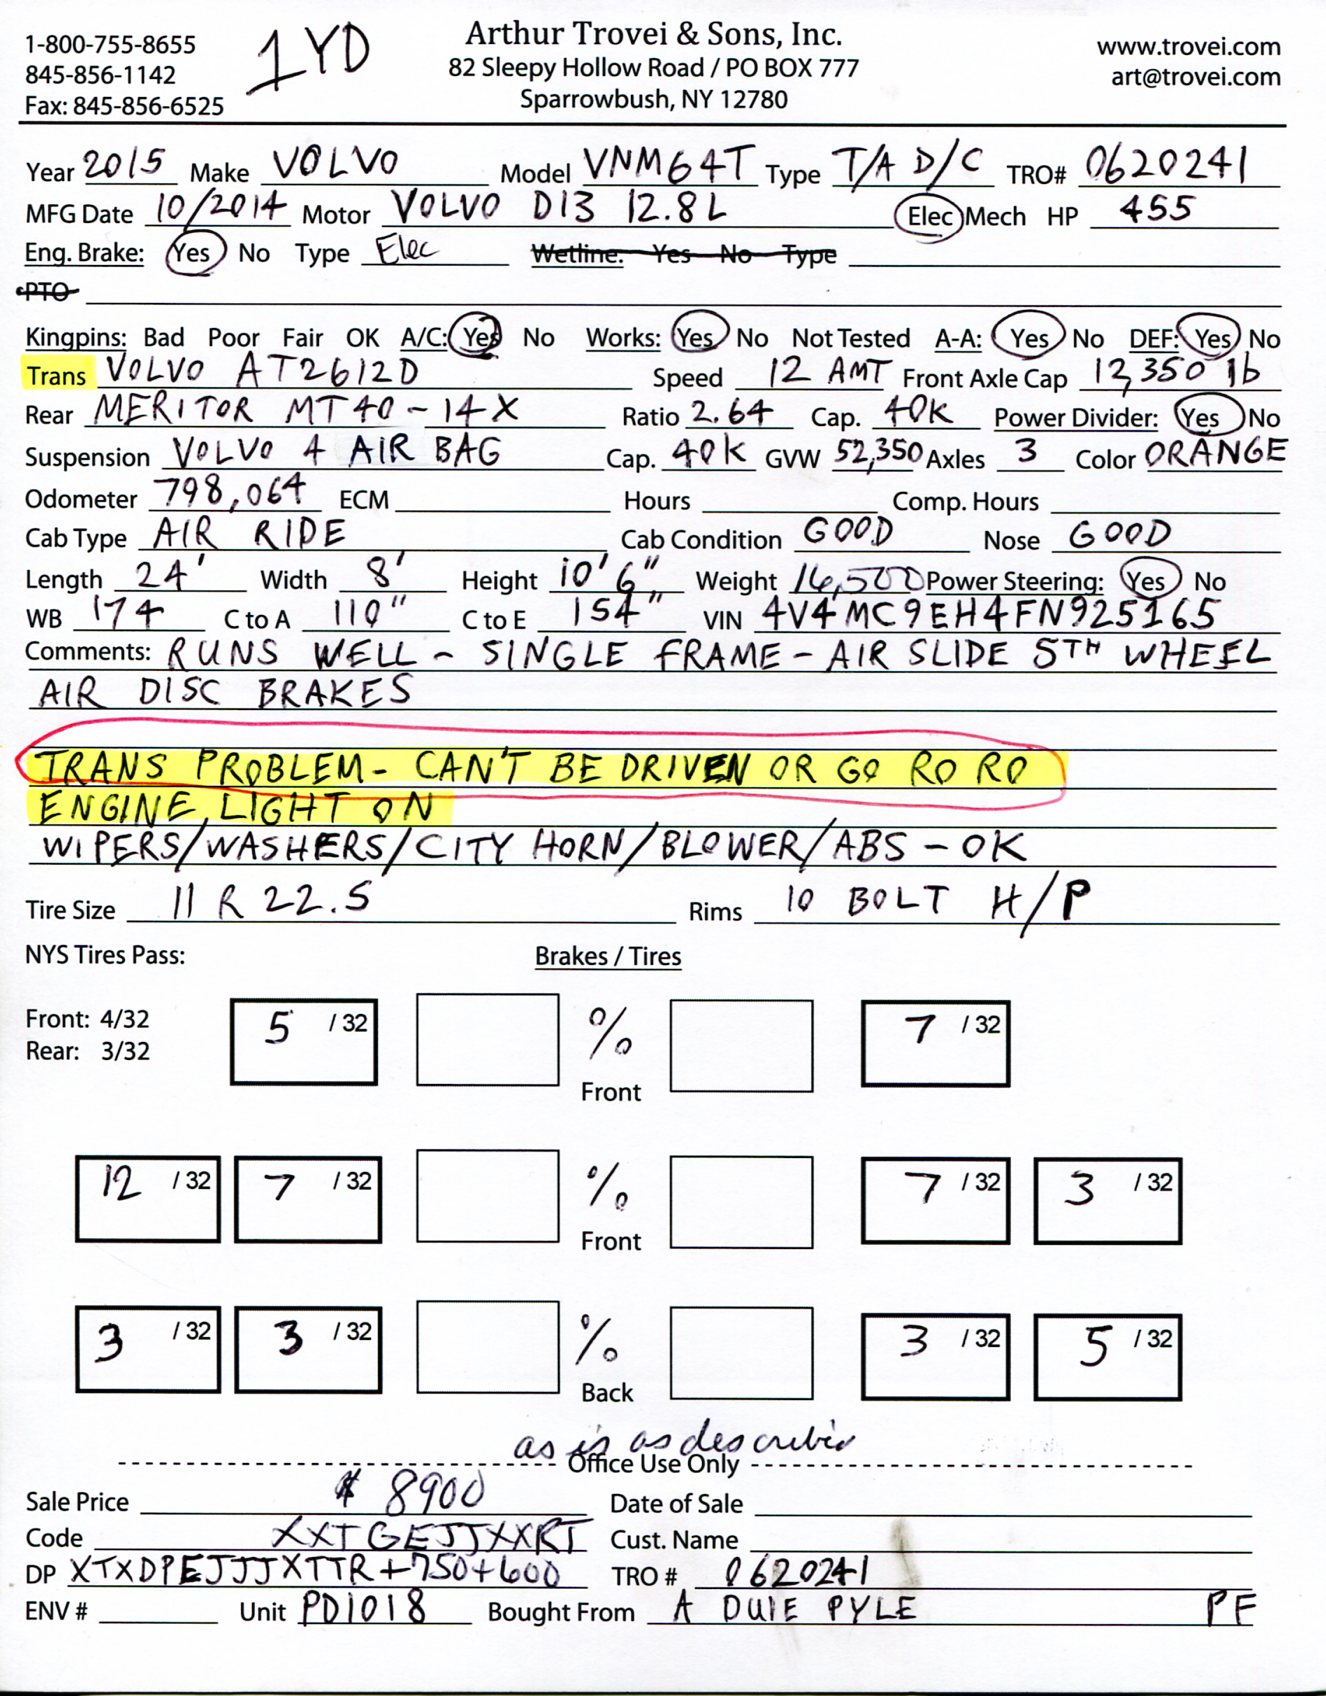 1-800-755-8655
845-856-1142
Fax: 845-856-6525
1YD
Arthur Trovei & Sons, Inc.
82 Sleepy Hollow Road / PO BOX 777
Sparrowbush, NY 12780
www.trovei.com
art@trovei.com
Year 2015 Make VOLVO Model VNM64T Type T/A D/C TRO# 0620241
MFG Date 10/2014 Motor VOLVO D13 12.8L Elec Mech HP 455
Eng. Brake: Yes No Type Elec Wetline: Yes No Type
PTO
Kingpins: Bad Poor Fair OK A/C: Yes No Works: Yes No Not Tested A-A: Yes No DEF: Yes No
Trans VOLVO AT2612D Speed 12 AMT Front Axle Cap 12,350 lb
Rear MERITOR MT40-14X Ratio 2.64 Cap. 40K Power Divider: Yes No
Suspension VOLVO 4 AIR BAG Cap. 40K GVW 52,350 Axles 3 Color ORANGE
Odometer 798,064 ECM Hours Comp. Hours
Cab Type AIR RIDE Cab Condition GOOD Nose GOOD
Length 24' Width 8' Height 10'6" Weight 16,500 Power Steering: Yes No
WB 174 C to A 110" C to E 154" VIN 4V4MC9EH4FN925165
Comments: RUNS WELL - SINGLE FRAME - AIR SLIDE 5TH WHEEL
AIR DISC BRAKES
TRANS PROBLEM - CAN'T BE DRIVEN OR GO RO RO
ENGINE LIGHT ON
WIPERS/WASHERS/CITY HORN/BLOWER/ABS - OK
Tire Size 11 R 22.5 Rims 10 BOLT H/P
NYS Tires Pass: Brakes / Tires
Front: 4/32
Rear: 3/32
5 /32 % 7 /32
Front
12 /32 7 /32 % 7 /32 3 /32
Front
3 /32 3 /32 % 3 /32 5 /32
Back
as is as described
Office Use Only
Sale Price $ 8900 Date of Sale
Code XXTGEJJXXRT Cust. Name
DP XTXDPEJJJXTTR+750+600 TRO # 0620241
ENV # Unit PD1018 Bought From A DUIE PYLE PF